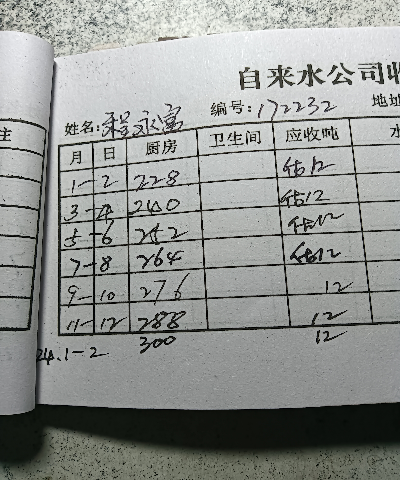 自来水公司收
姓名:程永富 编号:172232 地址
注
月 日 厨房 卫生间 应收吨 水
1-2 228 估12
3-4 240 估12
5-6 252 估12
7-8 264 估12
9-10 276 12
11-12 288 12
24.1-2 300 12